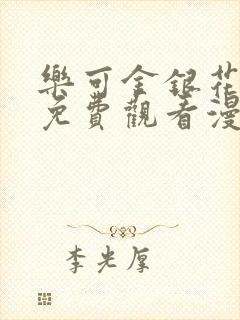 樂可金銀花
免費觀看漫
李光厚